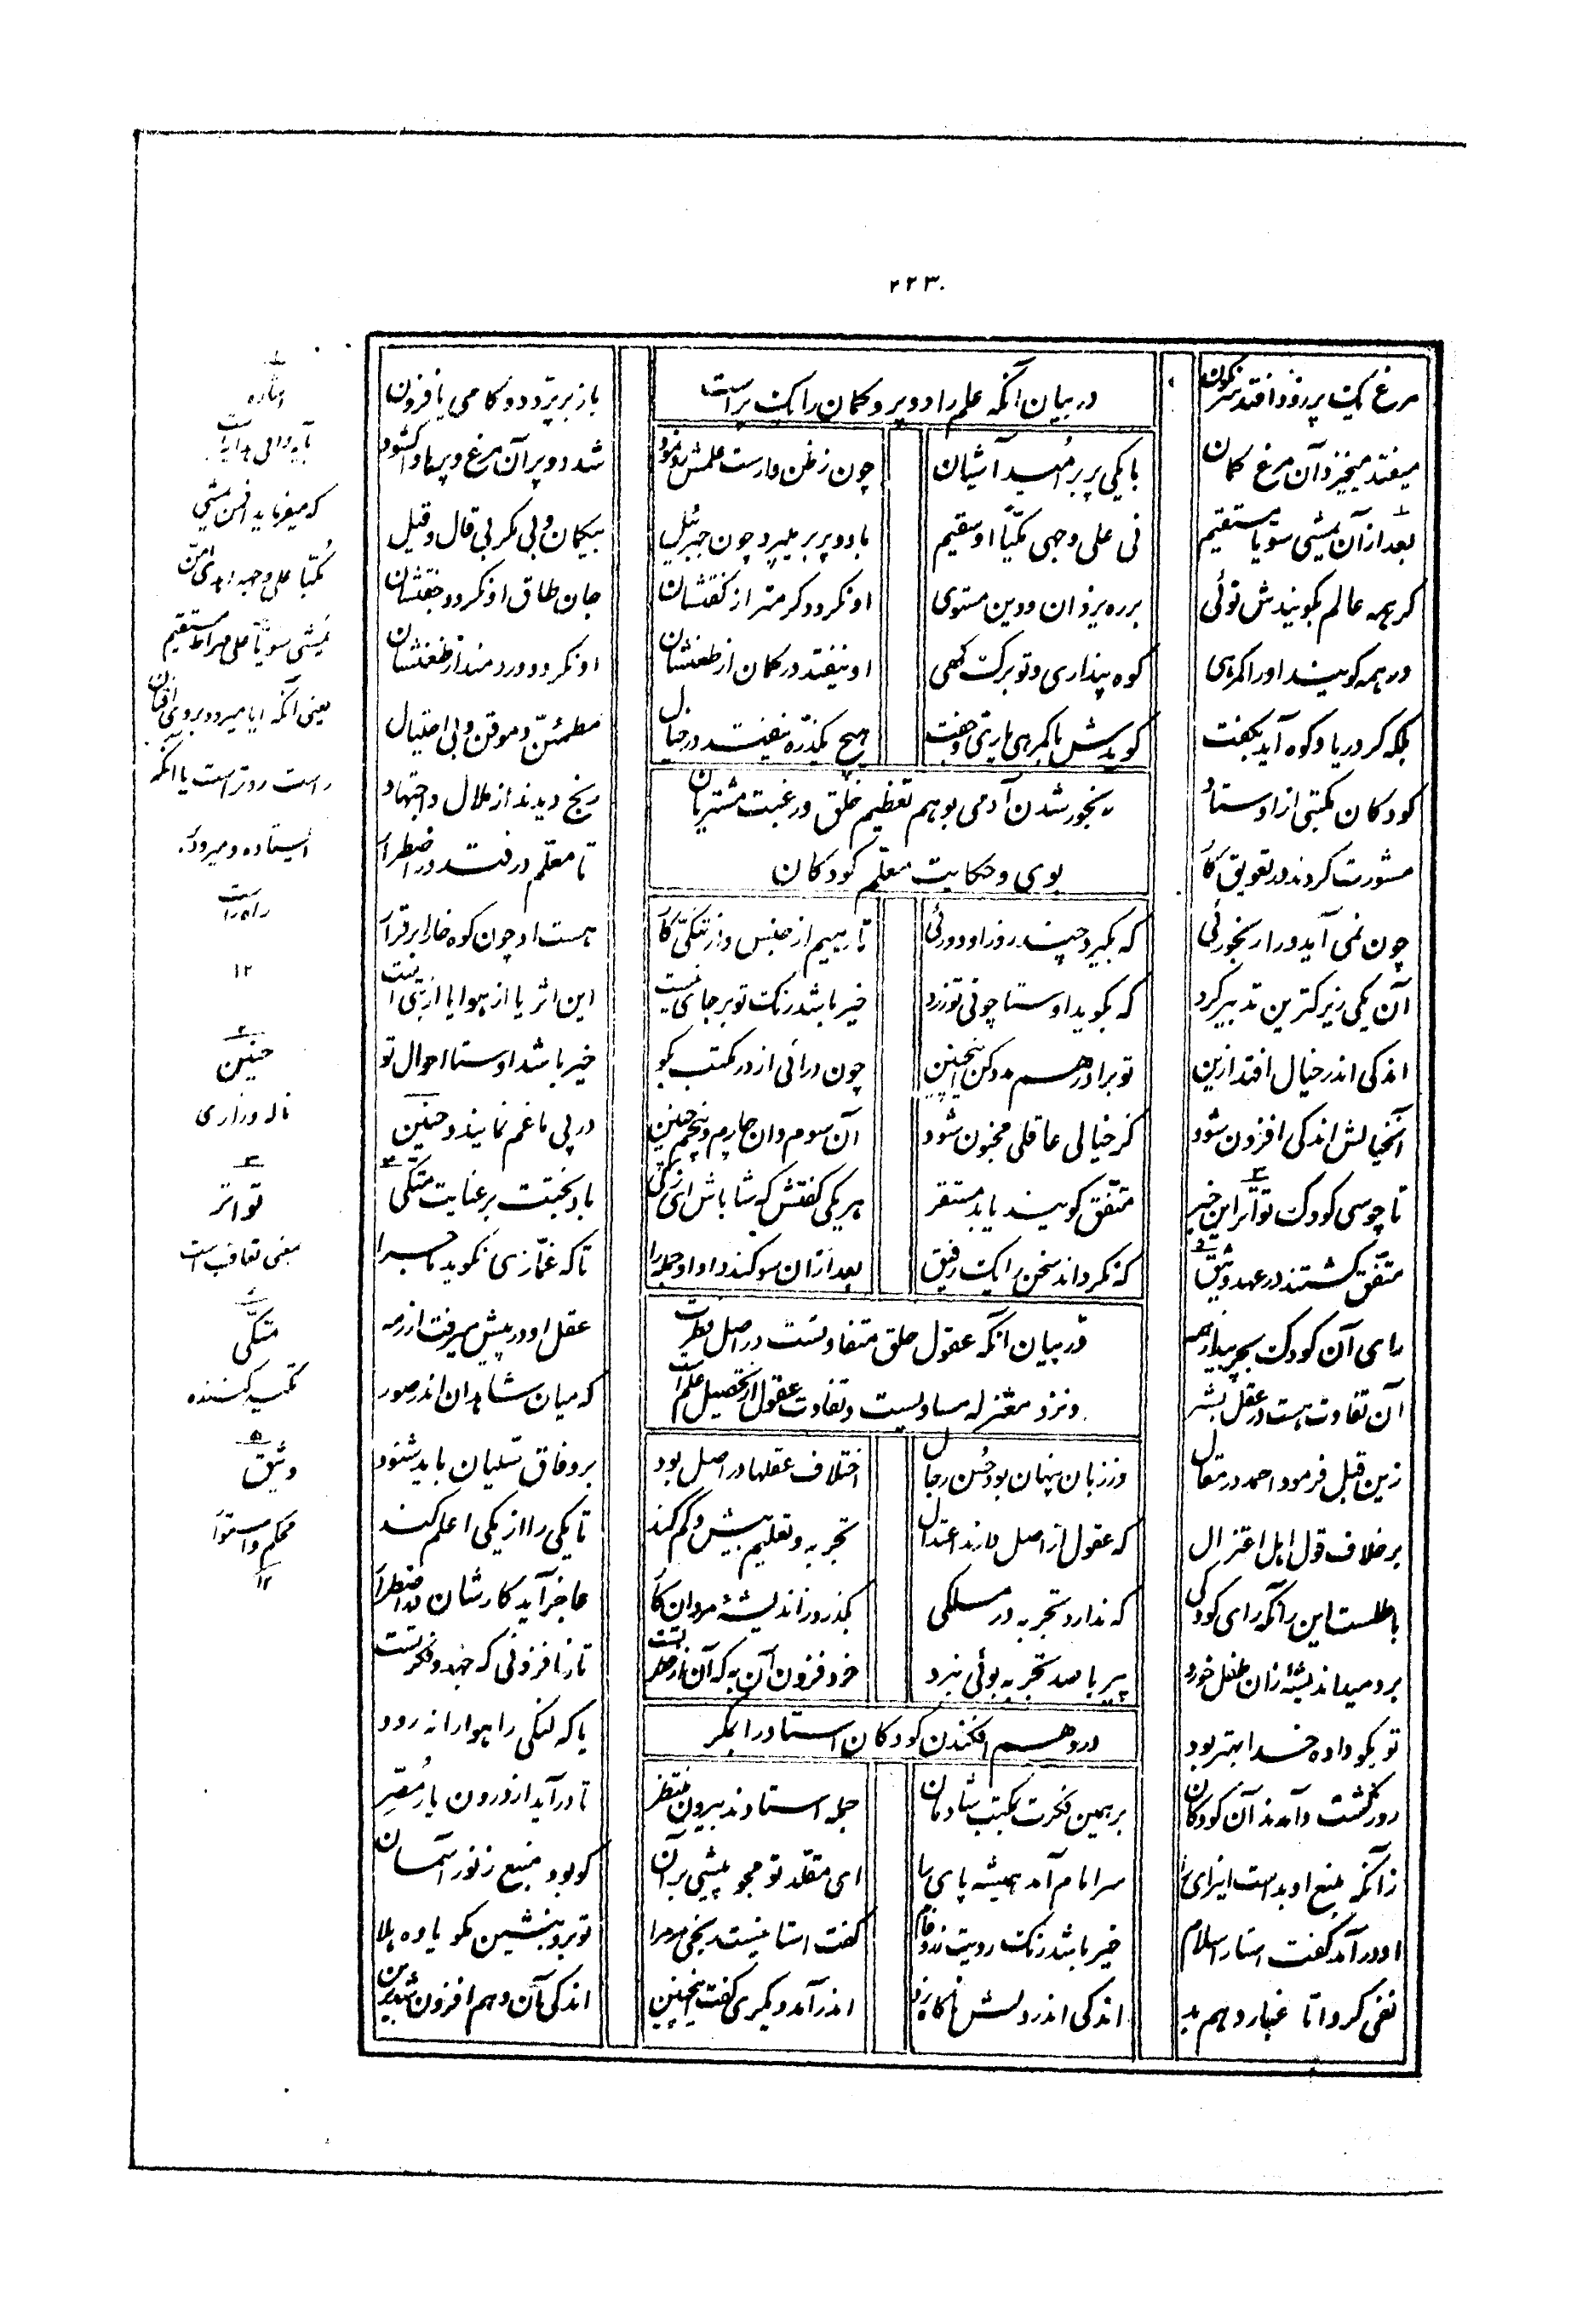 ۲۲۳
مرغ یک پر زود افتد سرنگون
باز بر پرّد دو گامی یا فزون
در بیان آنکه علم را دو پر و گمان را یک پر است
میفتد میخیزد آن مرغ گمان
با یکی پر بر امید آشیان
چون ز ظن وارست علمش رو نمود
شد دو پر آن مرغ و پرها وا گشود
بعد از آن یمشی سویا مستقیم
نی علی وجهی مکبّاً او سقیم
با دو پر بر میپرد چون جبرئیل
بیگمان و بی مگر بی قال و قیل
گر همه عالم بگویندش توئی
بر ره یزدان و دین مستوی
او نگردد گرمتر از گفتشان
جان طاق او نگردد جفتشان
ور همه گویند او را گمرهی
کوه پنداری و تو برگ کهی
او نیفتد در گمان از طعنشان
او نگردد دردمند از ظعنشان
بلکه گر دریا و کوه آید بگفت
گویدش با گمرهی یاری و جفت
هیچ یکذره نیفتد در خیال
مطمئنّ و موقن و بی احتیال
رنجور شدن آدمی بوهم تعظیم خلق و رغبت مشتریان
بوی و حکایت معلّم کودکان
کودکان مکتبی از اوستاد
رنج دیدند از ملال و اجتهاد
مشورت کردند در تعویق کار
تا معلّم در فتد در اضطرار
چون نمی آید ورا رنجورئی
که بگیرد چند روز او دورئی
تا رهیم از حبس و از تنگیّ کار
هست او چون کوه خارا برقرار
آن یکی زیرکترین تدبیر کرد
که بگوید اوستا چونی تو زرد
خیر باشد رنگ تو بر جای نیست
این اثر یا از هوا یا از تبی است
اندکی اندر خیال افتد ازین
تو برادر هم مدد کن اینچنین
چون درآئی از در مکتب بگو
خیر باشد اوستا احوال تو
آنخیالش اندکی افزون شود
کز خیالی عاقلی مجنون شود
آن سوم وان چارم و پنجم چنین
در پی ما غم نمایند و حنین
تا چو سی کودک تواتر این خبر
متّفق گویند یابد مستقر
هر یکی گفتش که شاباش ای ذکی
باد بختت بر عنایت متّکی
متّفق گشتند در عهد وثیق
که نگرداند سخن را یک رفیق
بعد ازان سوگند داد او جمله را
تا که غمّازی نگوید ماجرا
رای آن کودک بچربید از همه
عقل او در پیش میرفت از رمه
در بیان آنکه عقول خلق متفاوتست در اصل فطرت
و نزد معتزله مساویست و تفاوت عقول از تحصیل علم است
آن تفاوت هست در عقل بشر
که میان شاهدان اندر صور
زین قبل فرمود احمد در مقال
در زبان پنهان بود حُسن رجال
اختلاف عقلها در اصل بود
بر وفاق سنّیان باید شنود
بر خلاف قول اهل اعتزال
که عقول از اصل دارند اعتدال
تجربه و تعلیم بیش و کم کند
تا یکی را از یکی اعلم کند
باطلست این زانکه رای کودکی
که ندارد تجربه در مسلکی
بگذرد ز اندیشهٔ مردان کار
عاجز آید کارشان در اضطرار
بر دمید اندیشهٔ زان طفل خرد
پیر با صد تجربه بوئی نبرد
خود فزون آن به که آن از فطرتست
تا ز افزونی که جهد و فکرتست
تو بگو داده خدا بهتر بود
یا که لنگی راهوارانه رود
در وهم افکندن کودکان استاد را بمکر
روز گشت و آمدند آن کودکان
بر همین فکرت بمکتب شادمان
جمله استادند بیرون منتظر
تا درآید از درون یار مُصِر
زانکه منبع او بدست این رای را
سر امام آمد همیشه پای را
ای مقلّد تو مجو پیشی بر آن
کو بود منبع ز نور آسمان
او درآمد گفت استا را سلام
خیر باشد رنگ رویت زردفام
گفت استا نیست رنجی مر مرا
تو برو بنشین مگو یاوه هلا
نفی کرد اما غبار وهم بد
اندکی اندر دلش ناگاه زد
اندر آمد دیگری گفت اینچنین
اندکی آن وهم افزون شد بدین
۱
اشاره
بآیه وافی هدایه است
که میفرماید افمن یمشی
مُکبّا علی وجهه اهدی امّن
یَمشی سویّاً علی صراط مستقیم
یعنی آنکه آیا میرود بروی افتان
راست روتر است یا آنکه
ایستاده و میرود
راه راست
۱۲
۲
حنین
ناله و زاری
۳
تواتر
بمعنی تعاقب است
۴
متّکی
تکیه کننده
۵
وثیق
محکم و استوار
۱۲